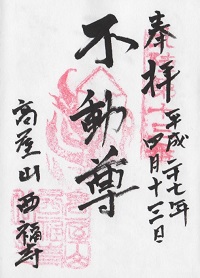 奉拝
平成二十七年
四月十三日
不動尊
高登山 西福寺